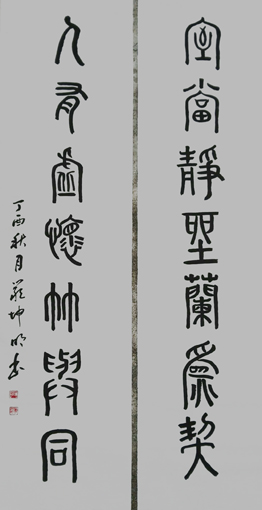 室當靜聖蘭為契
人有虛懷竹與同
丁酉秋月坤明书